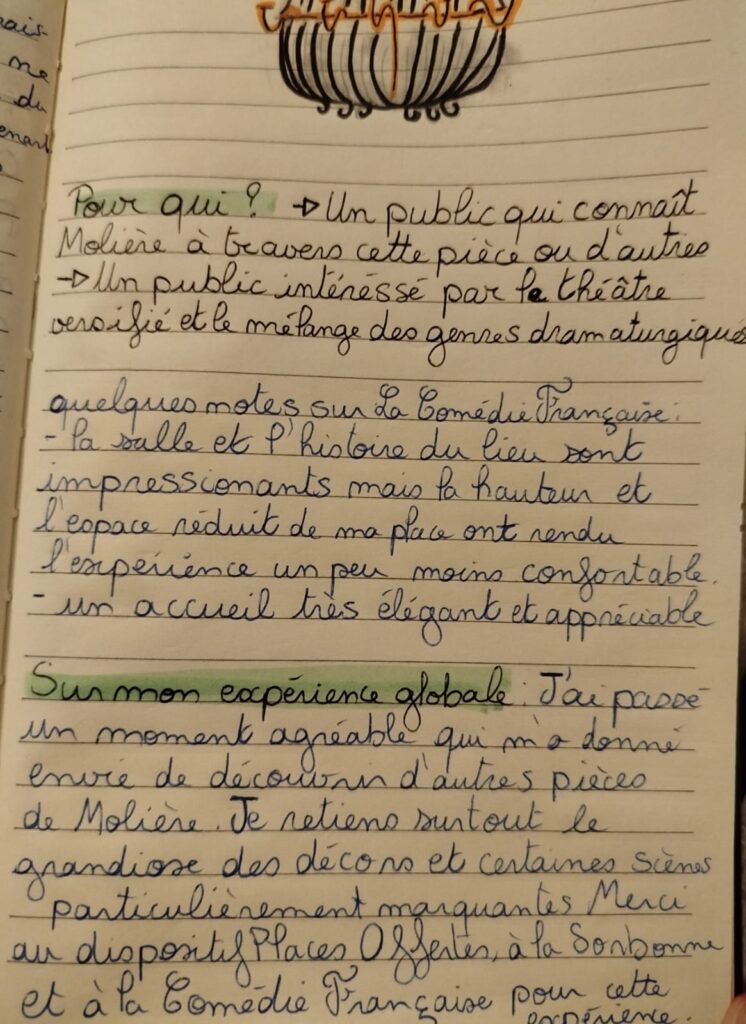 rais-
ne
du
enant
Pour qui ? → Un public qui connaît
Molière à travers cette pièce ou d'autres
→ Un public intéréssé par le théâtre
versifié et le mélange des genres dramaturgiques
quelques notes sur La Comédie Française :
- la salle et l'histoire du lieu sont
impressionants mais la hauteur et
l'espace réduit de ma place ont rendu
l'expérience un peu moins confortable.
- un accueil très élégant et appréciable
Sur mon expérience globale : J'ai passé
un moment agréable qui m'a donné
envie de découvrir d'autres pièces
de Molière. Je retiens surtout le
grandiose des décors et certaines scènes
particulièrement marquantes Merci
au dispositif Places Offertes, à la Sorbonne
et à la Comédie Française pour cette
expérience.